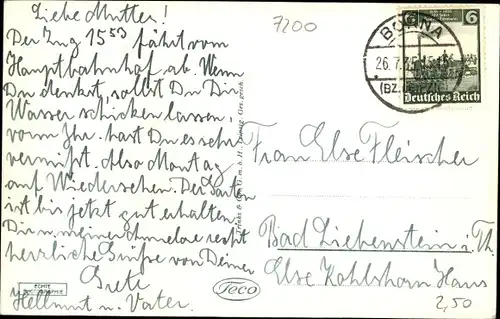 Liebe Mutter!
Der Zug 15 53 fährt vom
Hauptbahnhof ab. Wenn
Du denkst, sollst Du Dir
Wasser schicken lassen,
vorm Jhr. hast Du es sehr
vermißt. Also Montag
auf Wiedersehen. Der Garten
ist bis jetzt gut erhalten.
Dir u. meine
herrliche Grüße von Deiner
Grete
Hellmut u. Vater.
7200
BORNA
26.7.35
(BZ. LEIPZIG)
6 6
Deutsches Reich
Frau Else Fleischer
Bad Liebenstein i. Th.
Else Kohlshorn Haus
2,50
ECHTE
PHOTOGRAPHIE
Teco